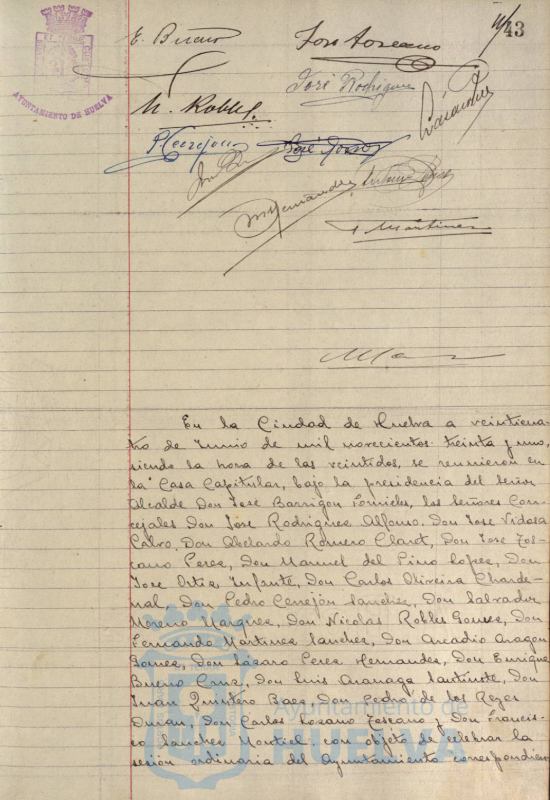 43
AYUNTAMIENTO DE HUELVA
E. Bueno
José Toscano
José Rodríguez
N. Robles
P. Cerrejón
José
M Hernandez
F Martinez
En la Ciudad de Huelva a veinticua-
tro de Junio de mil novecientos treinta y uno,
siendo la hora de las veintidos, se reunieron en
la Casa Capitular, bajo la presidencia del Señor
Alcalde Don José Barrigon Fornieles, los Señores Con-
cejales Don José Rodriguez Alfonso, Don José Vidosa
Calvo, Don Abelardo Romero Claret, Don José Tos-
cano Perez, Don Manuel del Pino Lopez, Don
José Ortiz Infante, Don Carlos Oliveira Charde-
nal, Don Pedro Cerrejón Sanchez, Don Salvador
Moreno Marquez, Don Nicolas Robles Gomez, Don
Fernando Martinez Sanchez, Don Arcadio Aragon
Gomez, Don Lázaro Perez Hernandez, Don Enrique
Bueno Cruz, Don Luis Aranaga Don
Juan Quintero Baez, Don Pedro de los Reyes
Duran, Don Carlos Lozano Toscano y Don Francis-
co Sanchez Montiel, con objeto de celebrar la
sesión ordinaria del Ayuntamiento correspondien
Ayuntamiento de
HUELVA